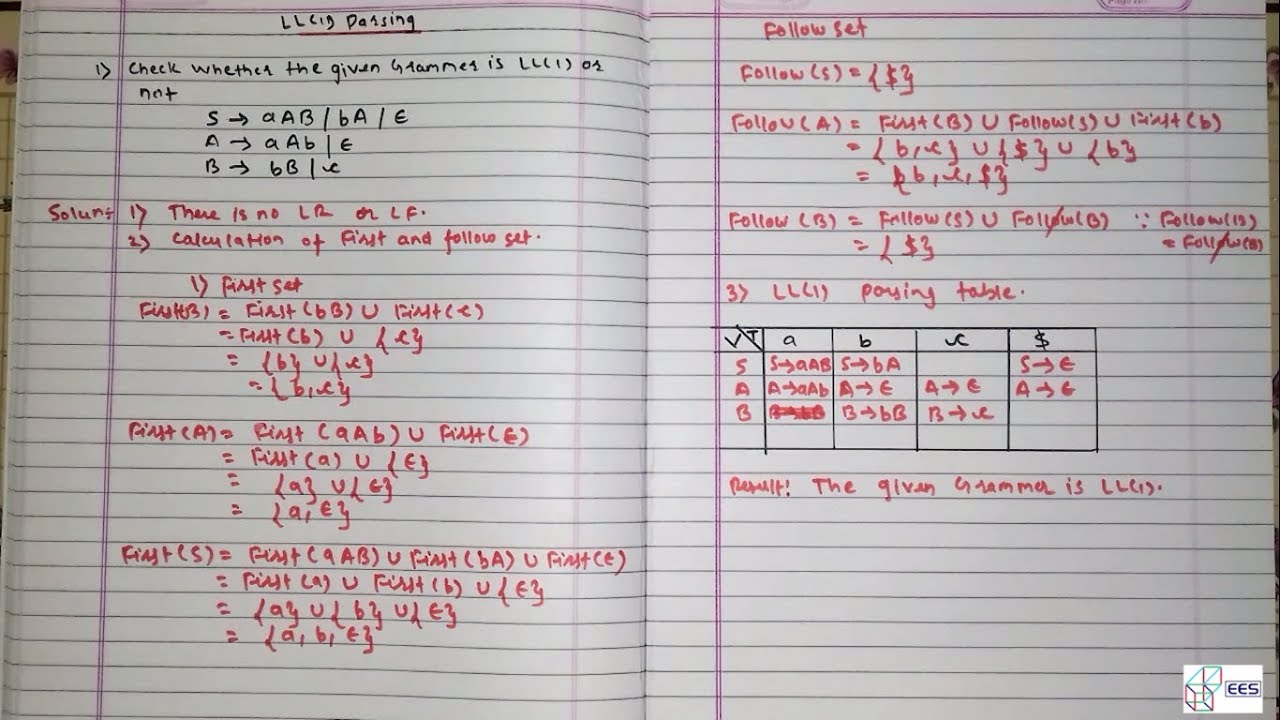 LL(1) Parsing
1) Check whether the given Grammer is LL(1) or
not
S → aAB / bA / ϵ
A → aAb | ϵ
B → bB | c
Soluns 1) There is no LR or LF.
2) Calculation of First and follow set.
1) First set
First(B) = First(bB) ∪ First(c)
= First(b) ∪ {c}
= {b} ∪ {c}
= {b,c}
First(A) = First(aAb) ∪ First(ϵ)
= First(a) ∪ {ϵ}
= {a} ∪ {ϵ}
= {a, ϵ}
First(S) = First(aAB) ∪ First(bA) ∪ First(ϵ)
= First(a) ∪ First(b) ∪ {ϵ}
= {a} ∪ {b} ∪ {ϵ}
= {a, b, ϵ}
Follow set
Follow(S) = {$}
Follow(A) = First(B) ∪ Follow(S) ∪ First(b)
= {b,c} ∪ {$} ∪ {b}
= {b,c,$}
Follow(B) = Follow(S) ∪ Follow(B) ∵ Follow(B)
= {$} = Follow(B)
3) LL(1) parsing table.
V T a b c $
S S→aAB S→bA S→ϵ
A A→aAb A→ϵ A→ϵ A→ϵ
B B→bB B→c
Result: The given Grammer is LL(1).
EES